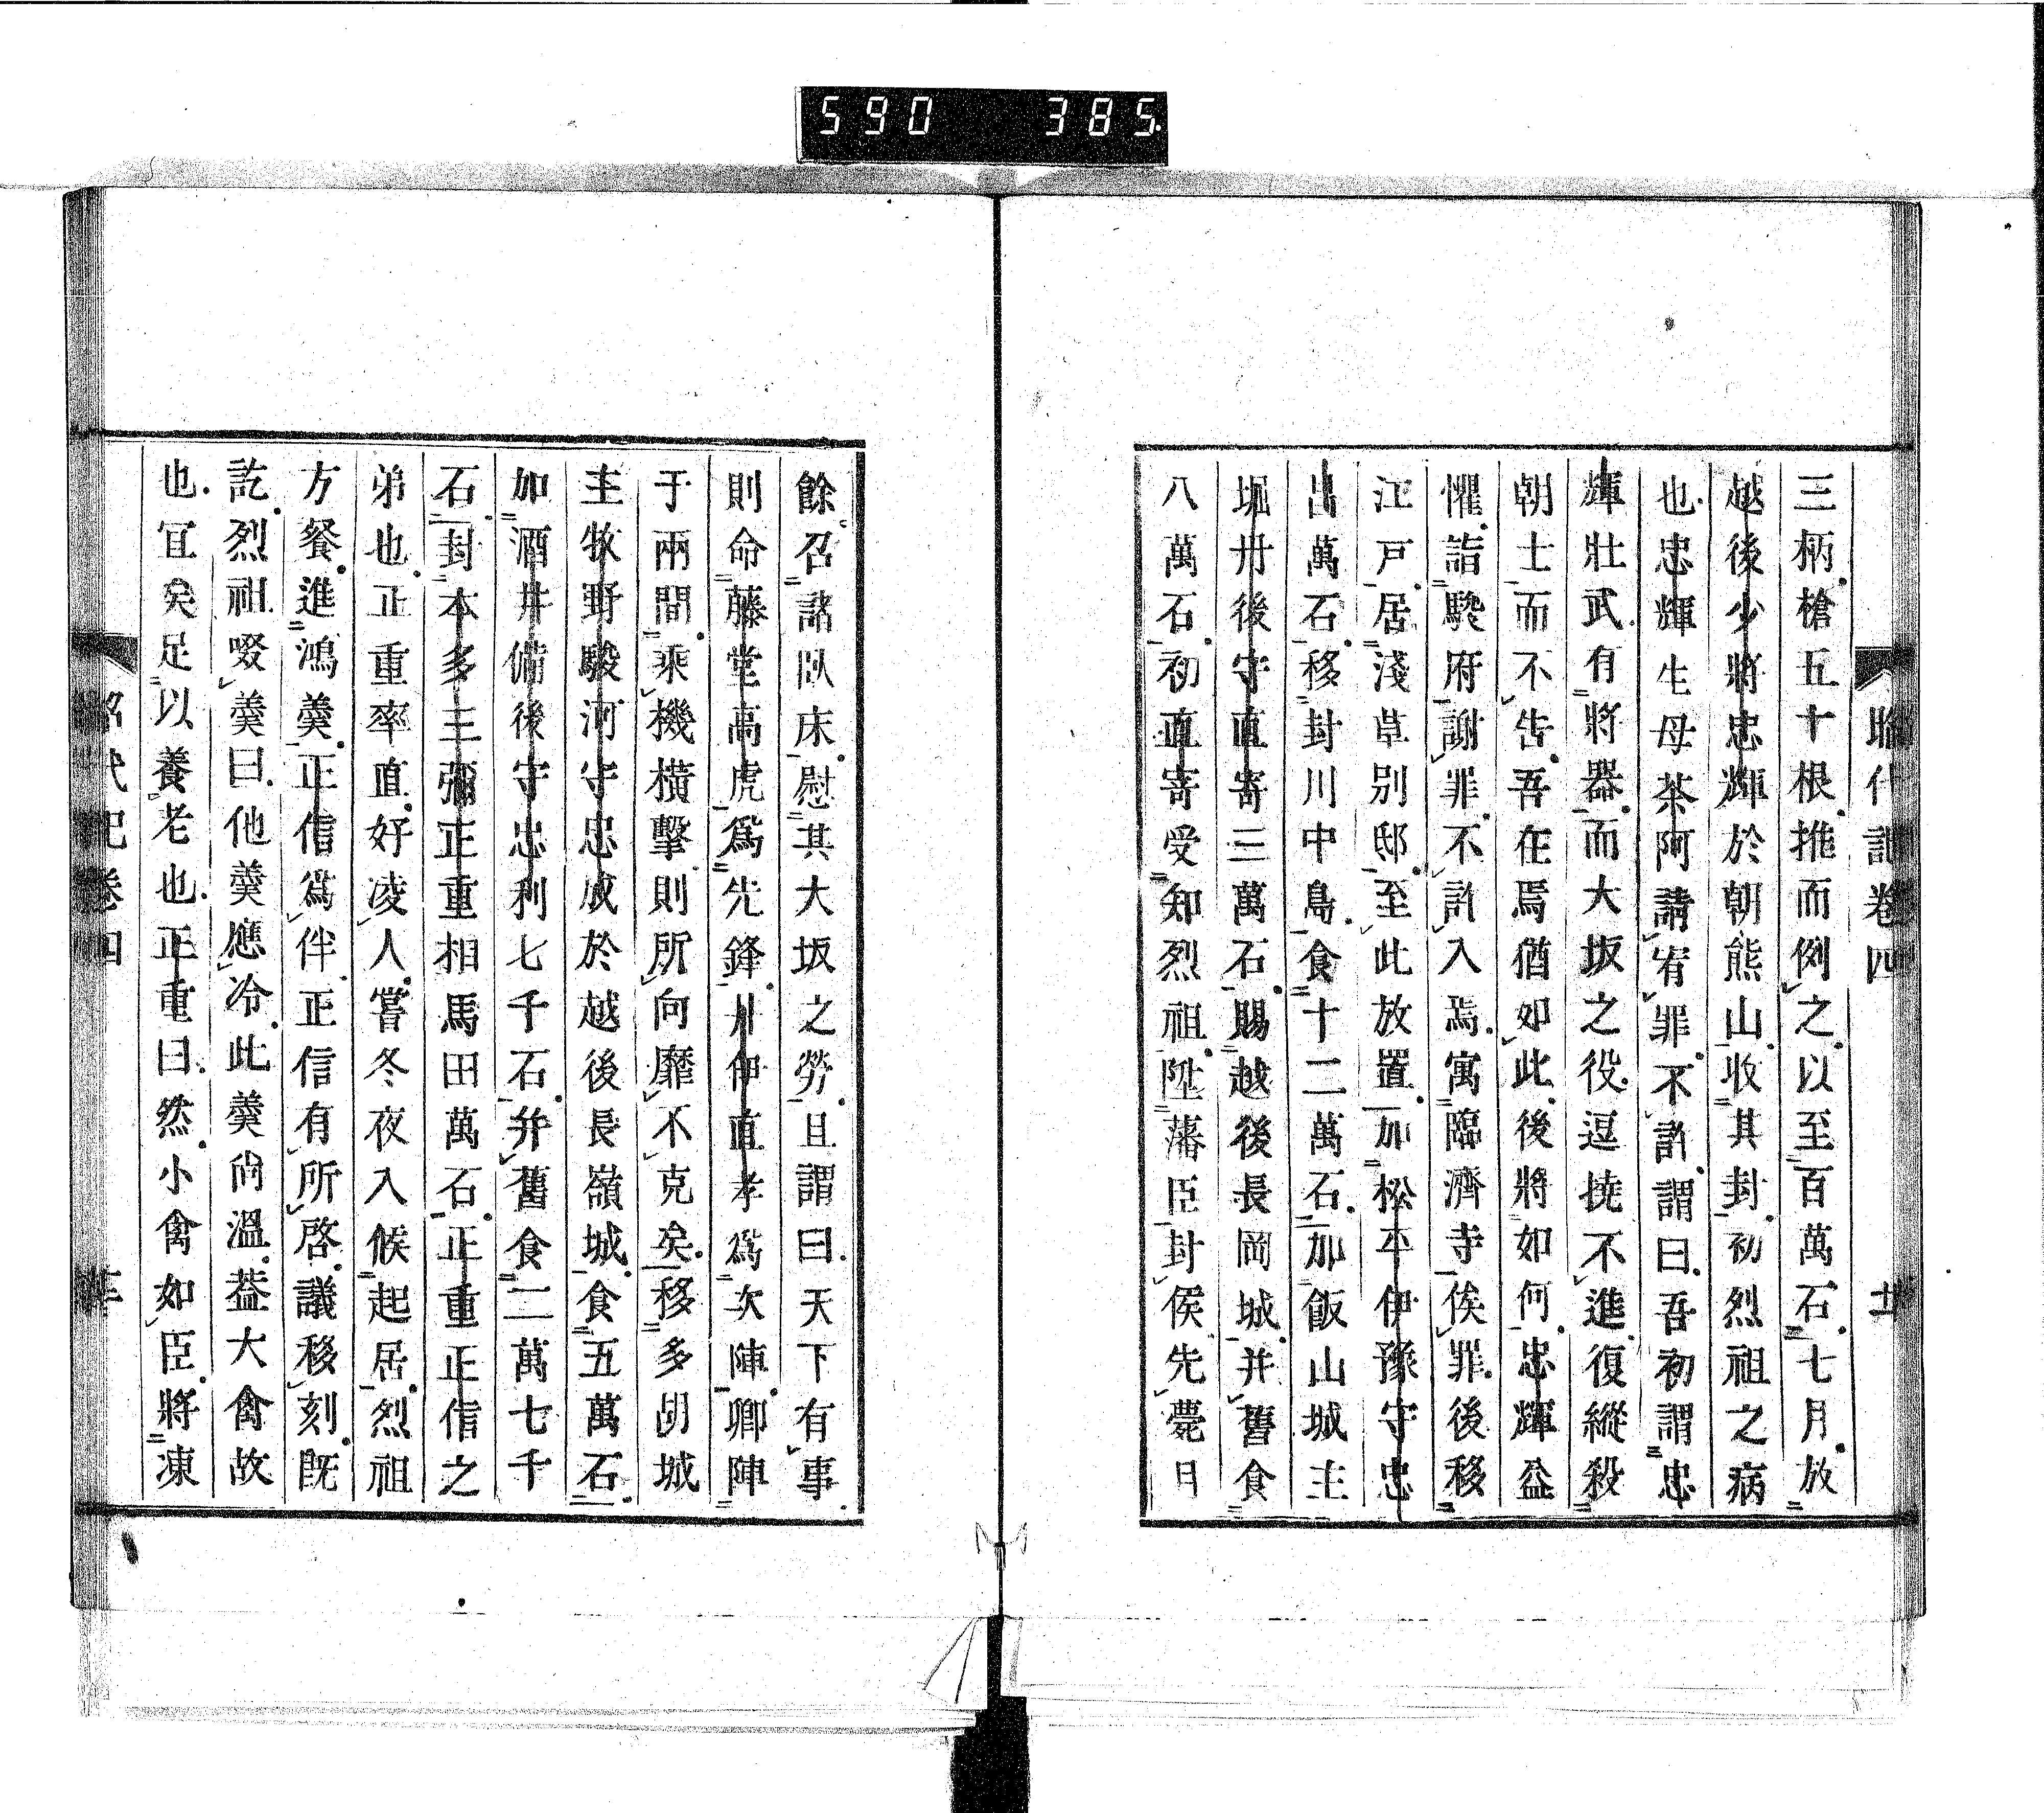 590 385
昭代記卷四 廿
三柄槍五十根推而例之以至百萬石七月放
越後少將忠輝於朝熊山收其封初烈祖之病
也忠輝生母茶阿請宥罪不許謂曰吾初謂忠
輝壯武有將器而大坂之役逗撓不進復縱殺
朝士而不告吾在焉猶如此後將如何忠輝益
懼詣駿府謝罪不許入焉寓臨濟寺俟罪後移
江戸居淺草別邸至此放置加松平伊豫守忠
昌萬石移封川中島食十二萬石加飯山城主
堀丹後守直寄三萬石賜越後長岡城并舊食
八萬石初直寄受知烈祖陞藩臣封侯先薨日
餘召諸臥床慰其大坂之勞且謂曰天下有事
則命藤堂高虎爲先鋒井伊直孝爲次陣卿陣
于兩間乘機橫擊則所向靡不克矣移多胡城
主牧野駿河守忠成於越後長嶺城食五萬石
加酒井備後守忠利七千石并舊食二萬七千
石封本多三彌正重相馬田萬石正重正信之
弟也正重率直好凌人嘗冬夜入候起居烈祖
方餐進鴻羹正信爲伴正信有所啓議移刻既
訖烈祖啜羹曰他羹應冷此羹尚溫蓋大禽故
也宜矣足以養老也正重曰然小禽如臣將凍
昭代記卷四